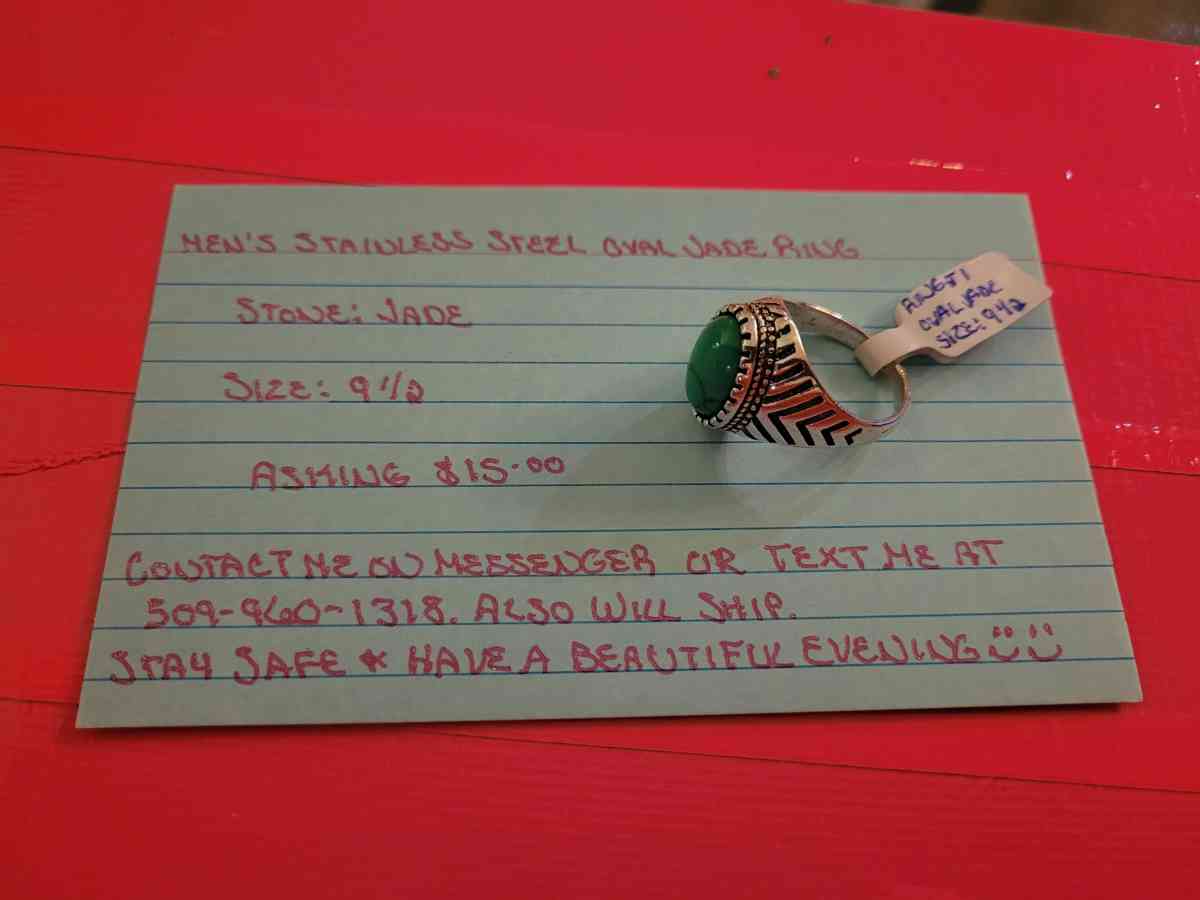 MEN'S STAINLESS STEEL OVAL JADE RING
STONE: JADE
SIZE: 9 1/2
ASKING $15.00
CONTACT ME ON MESSENGER OR TEXT ME AT
509-960-1318. ALSO WILL SHIP.
STAY SAFE & HAVE A BEAUTIFUL EVENING
OVAL JADE
SIZE: 9 1/2